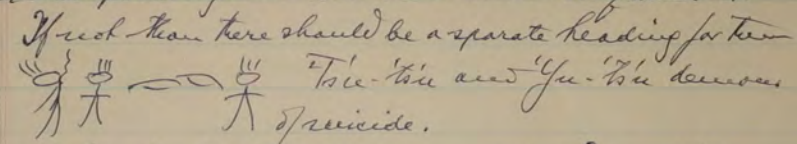 If not than there should be a sparate heading for them
'Ts'u-'ts'u and 'Yu-'ts'u demons
of suicide.